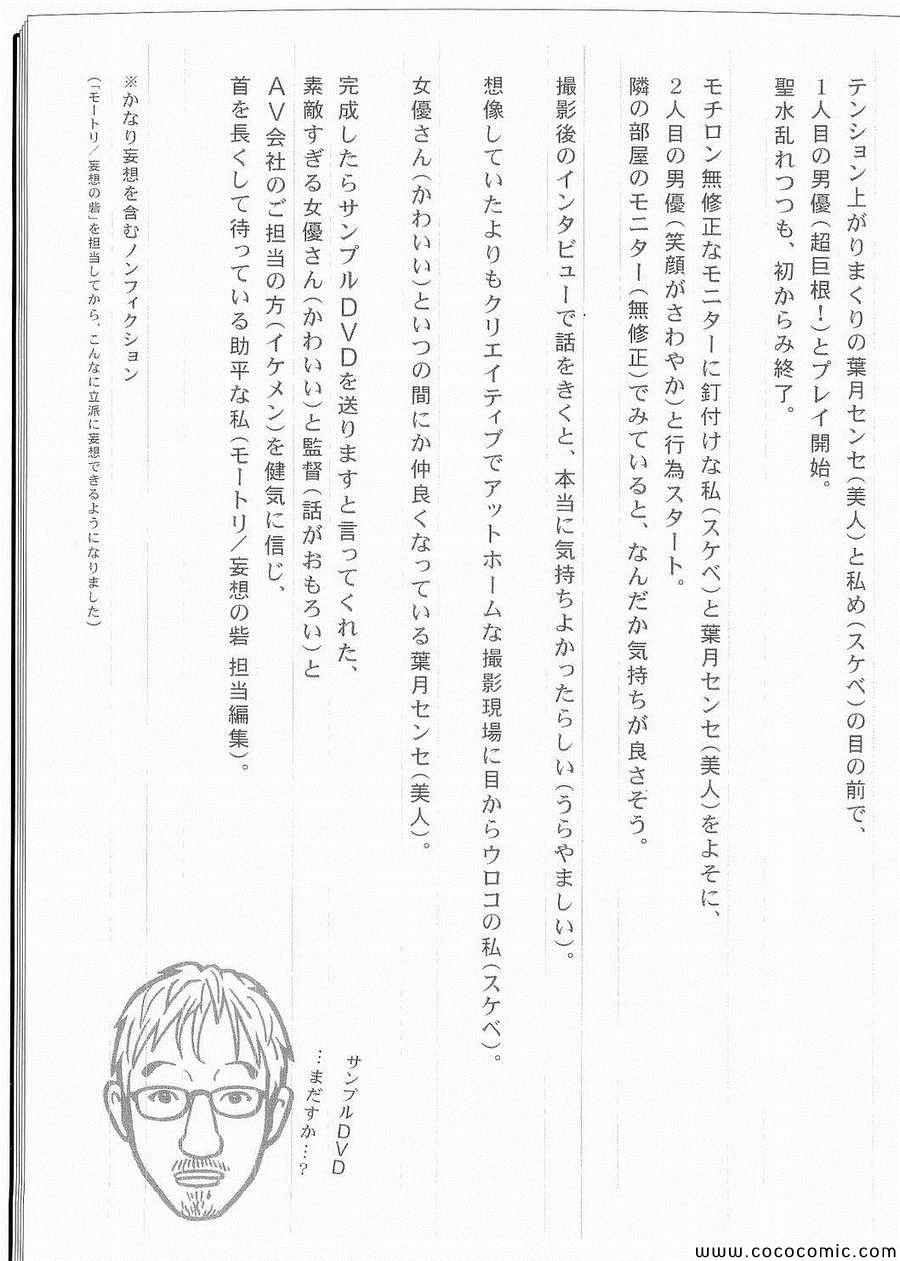 テンション上がりまくりの葉月センセ(美人)と私め(スケベ)の目の前で、
1人目の男優(超巨根!)とプレイ開始。
聖水乱れつつも、初からみ終了。
モチロン無修正なモニターに釘付けな私(スケベ)と葉月センセ(美人)をよそに、
2人目の男優(笑顔がさわやか)と行為スタート。
隣の部屋のモニター(無修正)でみていると、なんだか気持ちが良さそう。
撮影後のインタビューで話をきくと、本当に気持ちよかったらしい(うらやましい)。
想像していたよりもクリエイティブでアットホームな撮影現場に目からウロコの私(スケベ)。
女優さん(かわいい)といつの間にか仲良くなっている葉月センセ(美人)。
完成したらサンプルDVDを送りますと言ってくれた、
素敵すぎる女優さん(かわいい)と監督(話がおもろい)と
AV会社のご担当の方(イケメン)を健気に信じ、
首を長くして待っている助平な私(モートリ/妄想の砦 担当編集)。
※かなり妄想を含むノンフィクション
(「モートリ/妄想の砦」を担当してから、こんなに立派に妄想できるようになりました)
サンプルDVD
…まだすか…?
www.cococomic.com